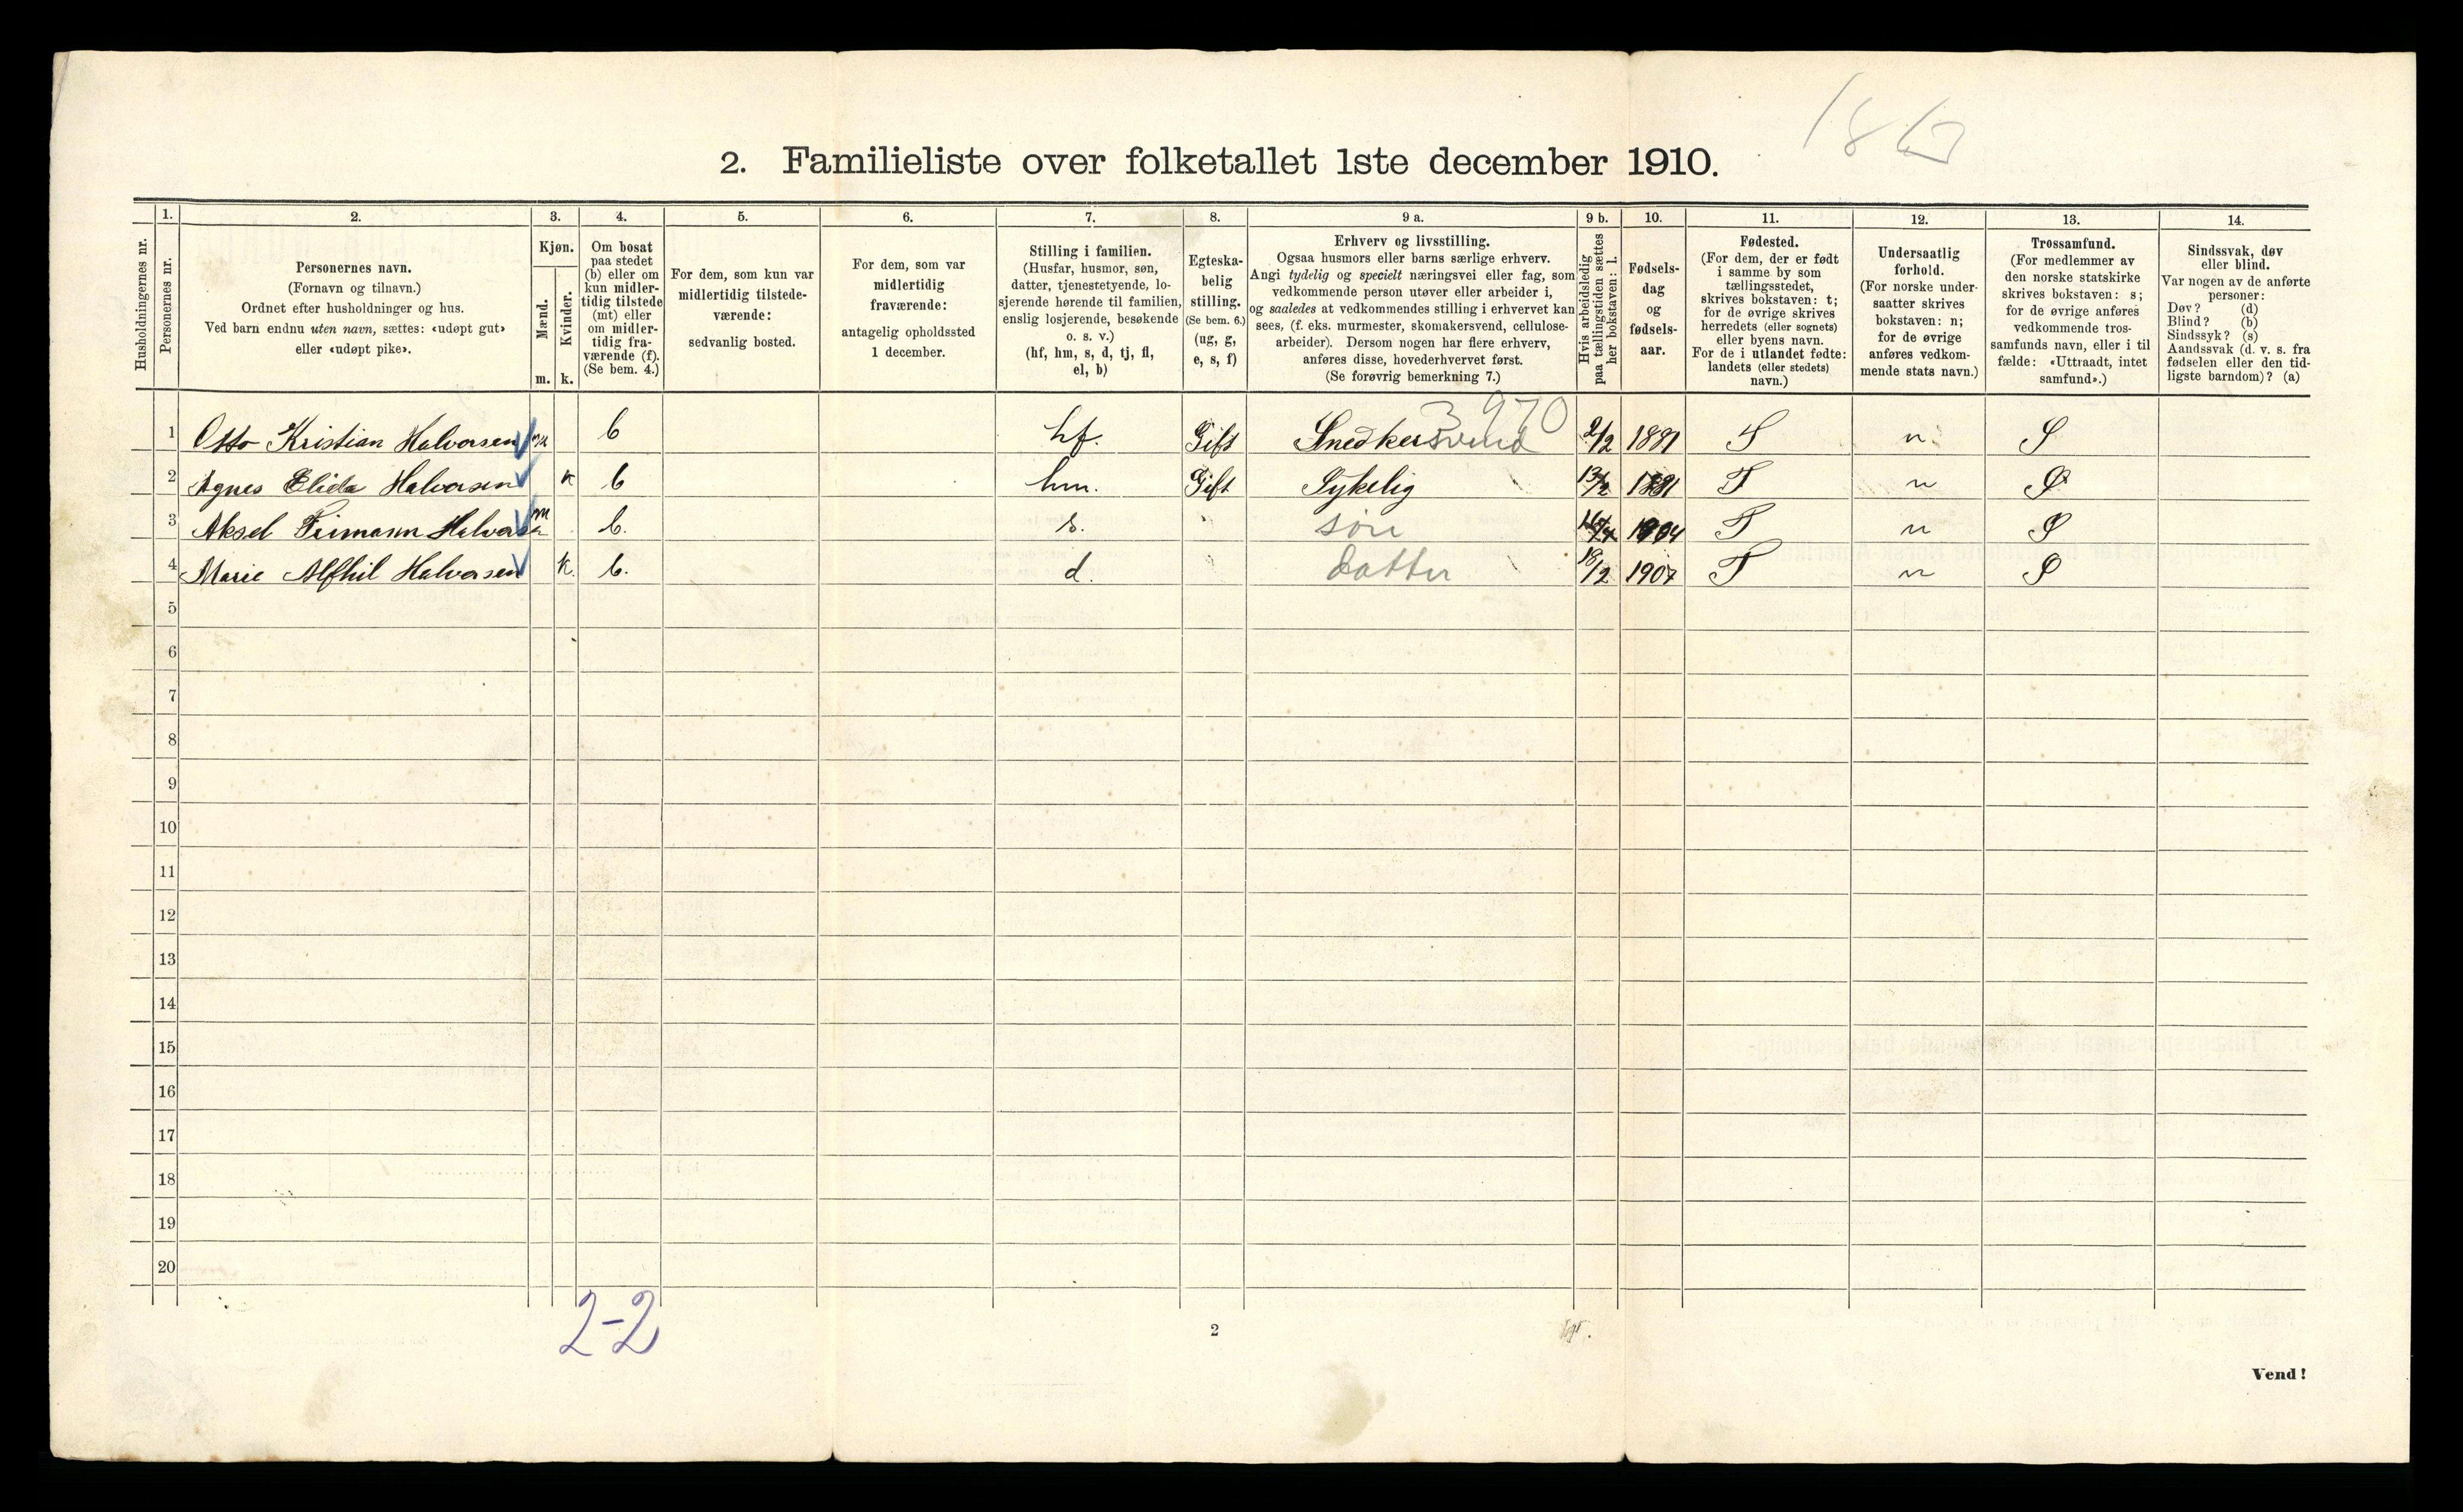 2. Familieliste over folketallet 1ste december 1910.
Husholdningernes nr.
1.
Personernes nr.
2.
Personernes navn.
(Fornavn og tilnavn.)
Ordnet efter husholdninger og hus.
Ved barn endnu uten navn, sættes: «udøpt gut»
eller «udøpt pike».
3.
Kjøn.
Mænd.
Kvinder.
m. k.
4.
Om bosat
paa stedet
(b) eller om
kun midler-
tidig tilstede
(mt) eller
om midler-
tidig fra-
værende (f).
(Se bem. 4.)
5.
For dem, som kun var
midlertidig tilstede-
værende:
sedvanlig bosted.
6.
For dem, som var
midlertidig
fraværende:
antagelig opholdssted
1 december.
7.
Stilling i familien.
(Husfar, husmor, søn,
datter, tjenestetyende, lo-
sjerende hørende til familien,
enslig losjerende, besøkende
o. s. v.)
(hf, hm, s, d, tj, fl,
el, b)
8.
Egteska-
belig
stilling.
(Se bem. 6.)
(ug, g,
e, s, f)
9 a.
Erhverv og livsstilling.
Ogsaa husmors eller barns særlige erhverv.
Angi tydelig og specielt næringsvei eller fag, som
vedkommende person utøver eller arbeider i,
og saaledes at vedkommendes stilling i erhvervet kan
sees, (f. eks. murmester, skomakersvend, cellulose-
arbeider). Dersom nogen har flere erhverv,
anføres disse, hovederhvervet først.
(Se forøvrig bemerkning 7.)
9 b.
Hvis arbeidsledig
paa tællingstiden sættes
her bokstaven: l.
10.
Fødsels-
dag
og
fødsels-
aar.
11.
Fødested.
(For dem, der er født
i samme by som
tællingsstedet,
skrives bokstaven: t;
for de øvrige skrives
herredets (eller sognets)
eller byens navn.
For de i utlandet fødte:
landets (eller stedets)
navn.)
12.
Undersaatlig
forhold.
(For norske under-
saatter skrives
bokstaven: n;
for de øvrige
anføres vedkom-
mende stats navn.)
13.
Trossamfund.
(For medlemmer av
den norske statskirke
skrives bokstaven: s;
for de øvrige anføres
vedkommende tros-
samfunds navn, eller i til
fælde: «Uttraadt, intet
samfund».)
14.
Sindssvak, døv
eller blind.
Var nogen av de anførte
personer:
Døv? (d)
Blind? (b)
Sindssyk? (s)
Aandssvak (d. v. s. fra
fødselen eller den tid-
ligste barndom)? (a)
3970
1 Otto Kristian Halvorsen m b hf. Gift Snedkersvend 2/2 1881 S n S
2 Agnes Elida Halvorsen k b hm. Gift Sykelig 13/2 1881 T n S
3 Aksel Halvorsen m b. s. søn 1904 T n S
4 Marie Alfhil Halvorsen k. b. d. datter 18/2 1907 T n S
5
6
7
8
9
10
11
12
13
14
15
16
17
18
19
20
2-2
2
Vend!